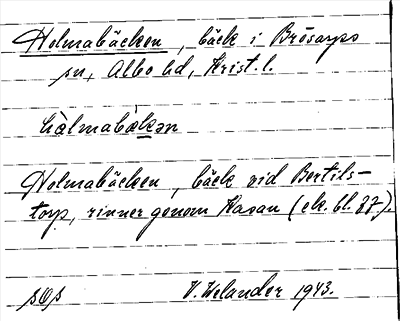 Holmabäcken, bäck i Brösarps
sn, Albo hd, Krist. l.
hòlmabɛ̀kən
Holmabäcken, bäck vid Bertils-
torp, rinner genom Kasan (ek. bl. 87).
sOs V. Welander 1943.